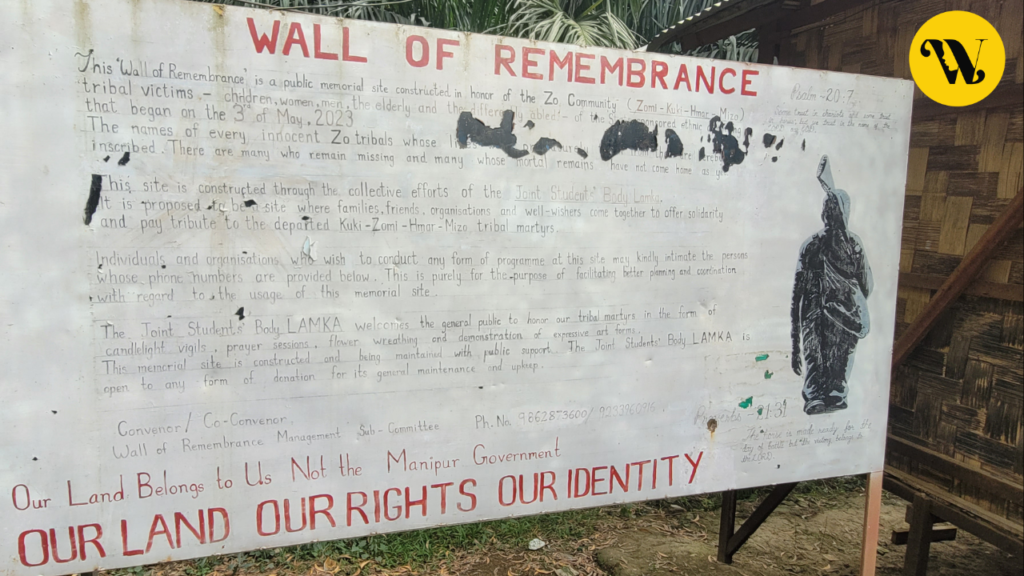 WALL OF REMEMBRANCE
This 'Wall of Remembrance' is a public memorial site constructed in honor of the Zo Community (Zomi-Kuki-Hmar-Mizo)
tribal victims - children, women, men, the elderly and the differently abled - of the ethnic
that began on the 3rd of May, 2023
The names of every innocent Zo tribals whose
inscribed. There are many who remain missing and many whose mortal remains have not come home as
This site is constructed through the collective efforts of the Joint Students' Body Lamka.
It is proposed to be a site where families, friends, organisations and well-wishers come together to offer solidarity
and pay tribute to the departed Kuki-Zomi-Hmar-Mizo tribal martyrs.
Individuals and organisations who wish to conduct any form of programme at this site may kindly intimate the persons
whose phone numbers are provided below. This is purely for the purpose of facilitating better planning and coordination
with regard to the usage of this memorial site.
The Joint Students' Body LAMKA welcomes the general public to honor our tribal martyrs in the form of
candlelight vigils, prayer sessions, flower wreathing and demonstration of expressive art forms.
This memorial site is constructed and being maintained with public support. The Joint Students' Body LAMKA is
open to any form of donation for its general maintenance and upkeep.
Convenor/ Co-Convenor
Wall of Remembrance Management Sub-Committee Ph. No. 9862873600/
Our Land Belongs to Us Not the Manipur Government
OUR LAND OUR RIGHTS OUR IDENTITY
Psalm - 20:7
Proverbs - 21:31
The horse is made ready for the
day of battle but the victory belongs to
the LORD
W